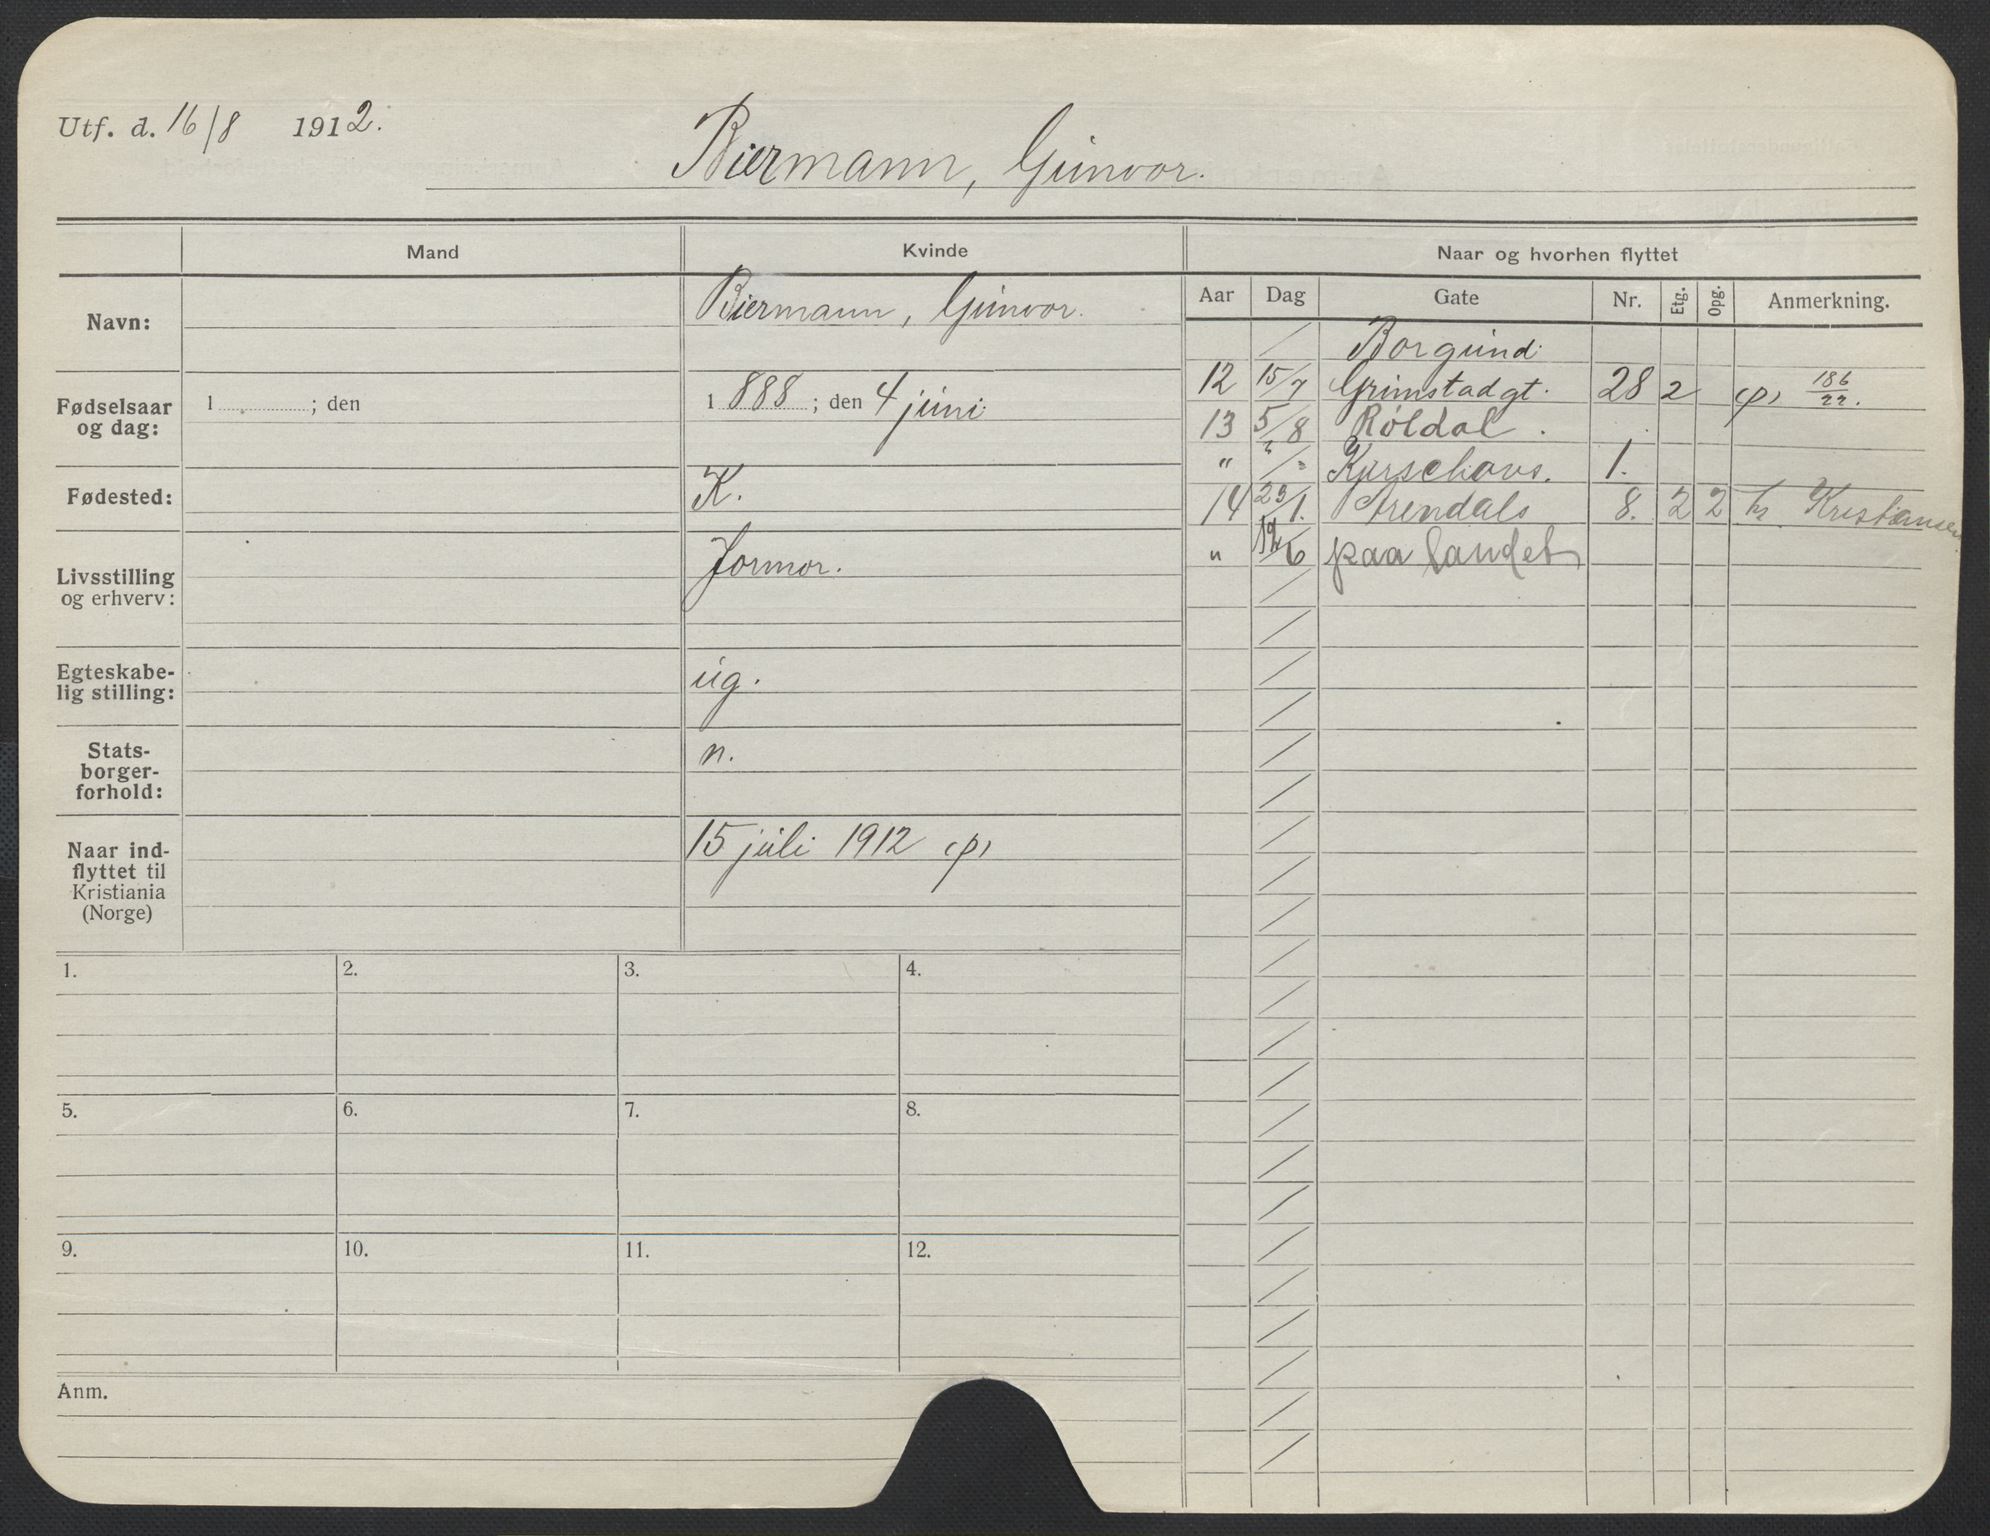 Utf. d. 16/8 1912.
Biermann, Gunvor.
Mand
Kvinde
Naar og hvorhen flyttet
Aar Dag Gate Nr. Etg. Opg. Anmerkning.
Navn:
Biermann, Gunvor.
Fødselsaar og dag:
1 ; den
1888 ; den 4 juni
Fødested:
K.
Livsstilling og erhverv:
Jormor.
Egteskabe-
lig stilling:
ug.
Stats-
borger-
forhold:
n.
Naar ind-
flyttet til
Kristiania
(Norge)
15 juli 1912 (p)
Borgund
12 15/7 Grimstadgt. 28 2 (p) 186/22.
13 5/8 Røldal.
" Kirschows. 1.
14 23/1. Arendals 8. 2 2 hr. Kristiansen
" 12/6 paa landet
1. 2. 3. 4.
5. 6. 7. 8.
9. 10. 11. 12.
Anm.